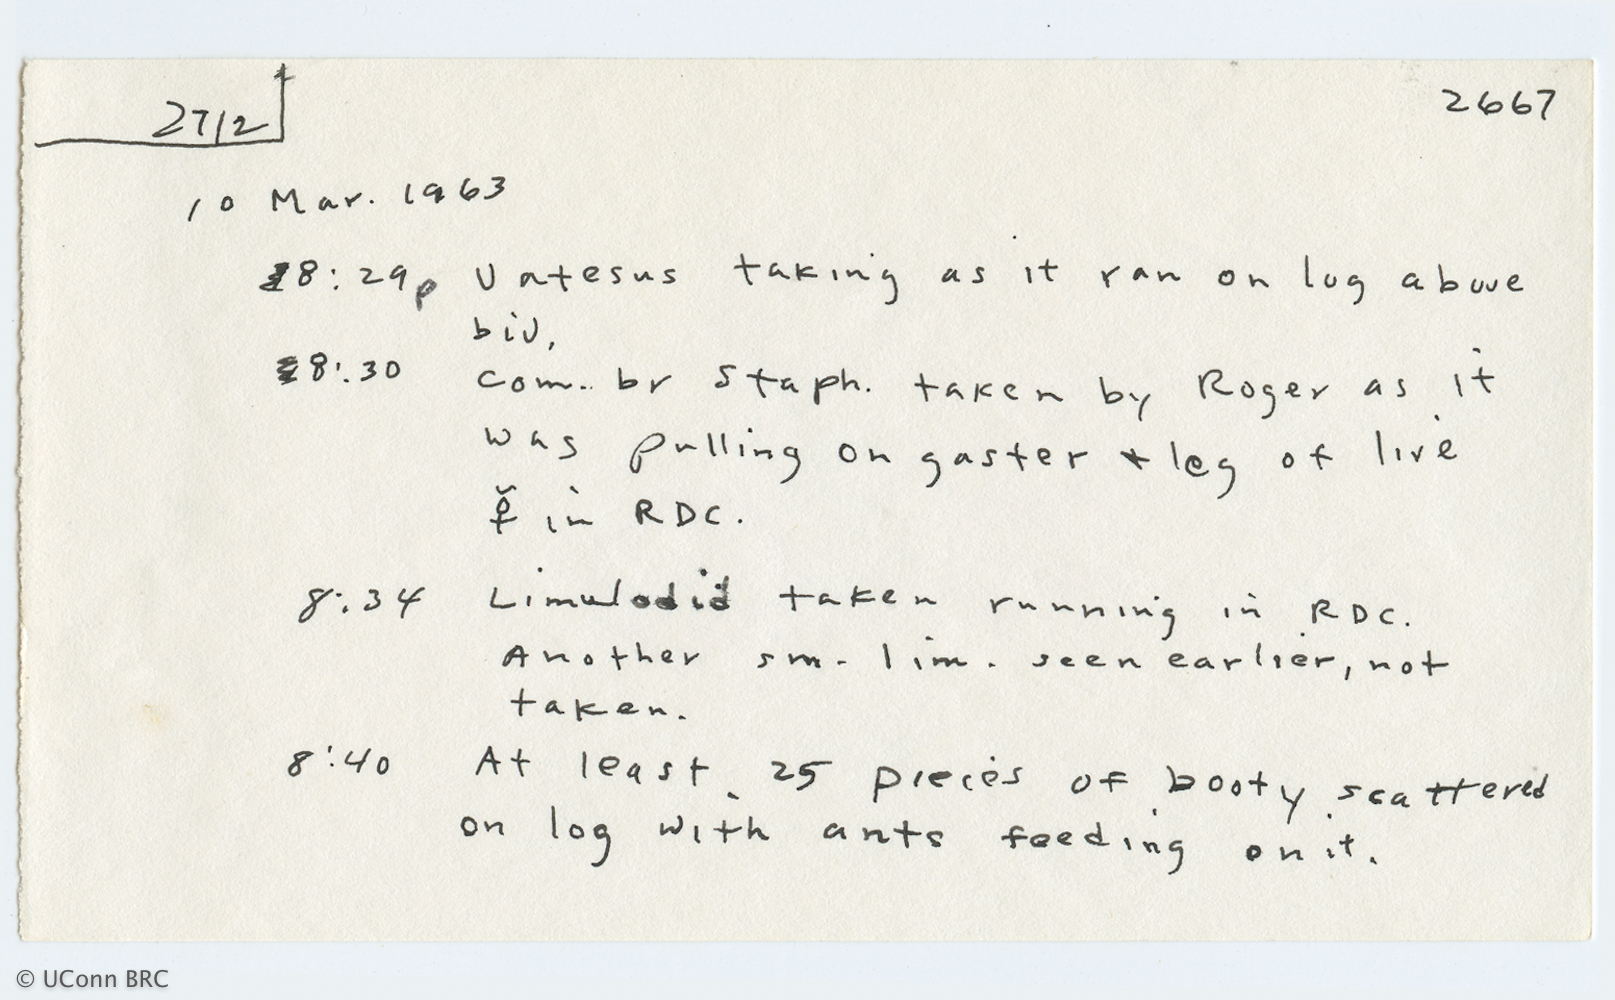 2712
2667
10 Mar. 1963
8:29p Vatesus taking as it ran on log above
biv.
8:30 Com. br Staph. taken by Roger as it
was pulling on gaster + leg of live
☿ in RDC.
8:34 Limulodid taken running in RDC.
Another sm. lim. seen earlier, not
taken.
8:40 At least 25 pieces of booty scattered
on log with ants feeding on it.
© UConn BRC